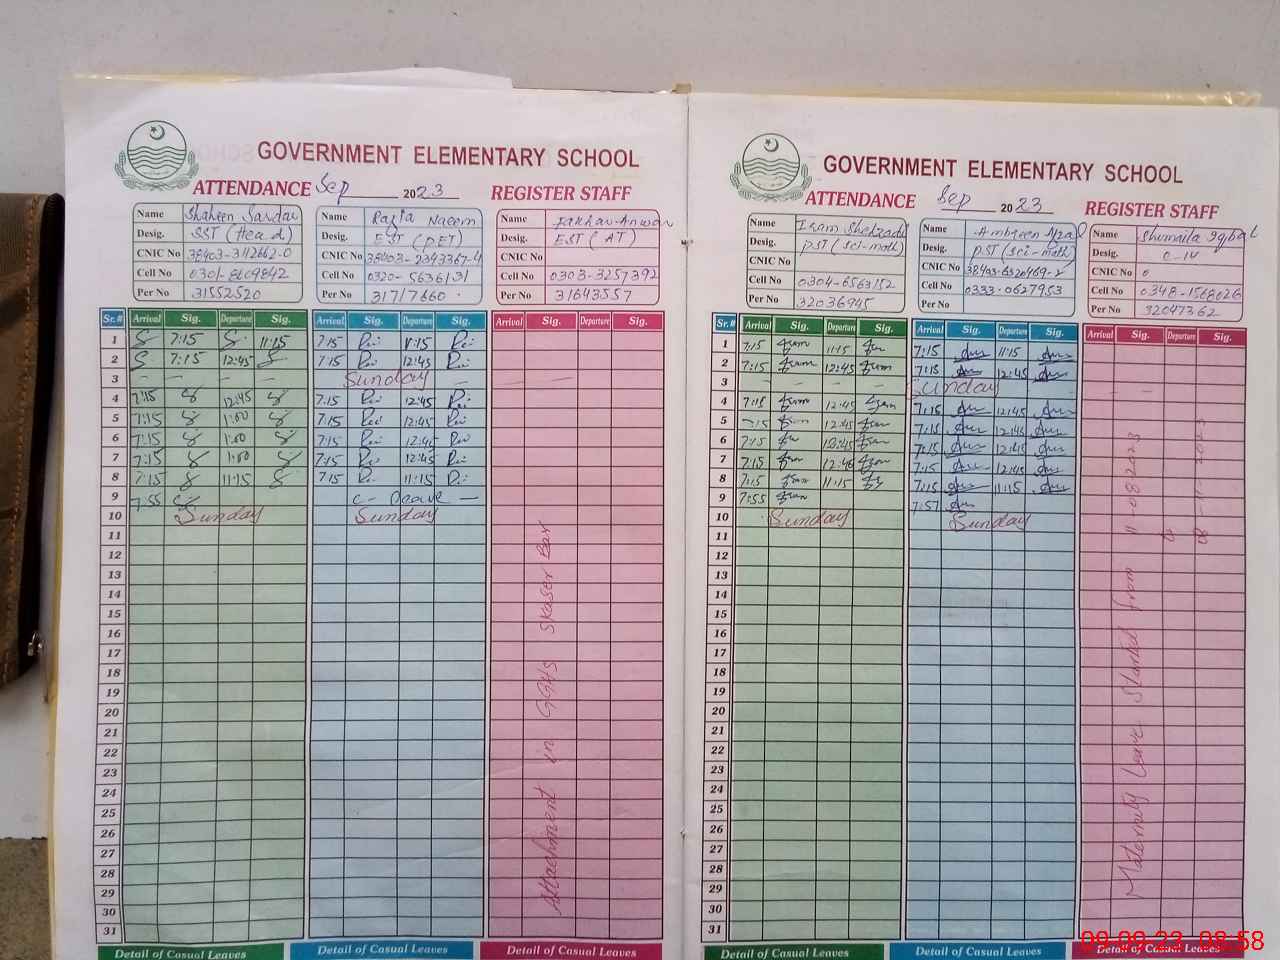 GOVERNMENT ELEMENTARY SCHOOL
ATTENDANCE Sep 2023 REGISTER STAFF
Name Shaheen Sardar
Desig. SST (Head)
CNIC No 38403-3112662-0
Cell No 0301-8609842
Per No 31552520
Name Razia Naeem
Desig. EST (PET)
CNIC No 38403-2343367-4
Cell No 0320-5636131
Per No 31717660
Name Anwar
Desig. EST (AT)
CNIC No
Cell No 0303-3257392
Per No 31643557
Sr.# Arrival Sig. Departure Sig. Arrival Sig. Departure Sig. Arrival Sig. Departure Sig.
1 7:15 11:15 7:15 11:15
2 7:15 12:45 7:15 12:45
3 Sunday
4 7:15 12:45 7:15 12:45
5 7:15 1:00 7:15 12:45
6 7:15 1:00 7:15 12:45
7 7:15 1:00 7:15 12:45
8 7:15 11:15 7:15 11:15
9 7:55 C-Leave
10 Sunday Sunday
11
12
13
14
15
16
17
18
19
20
21
22
23
24
25
26
27
28
29
30
31
Attachment in GGHS
Detail of Casual Leaves Detail of Casual Leaves Detail of Casual Leaves
GOVERNMENT ELEMENTARY SCHOOL
ATTENDANCE Sep 2023 REGISTER STAFF
Name Iram Shehzadi
Desig. PST (Sci-math)
CNIC No
Cell No 0304-6563152
Per No 32036945
Name Ambreen Afzal
Desig. PST (Sci-math)
CNIC No 38403-6320469-2
Cell No 0333-0627953
Per No
Name Shumaila Iqbal
Desig. C-IV
CNIC No 0
Cell No 0348-1568626
Per No 32047362
Sr.# Arrival Sig. Departure Sig. Arrival Sig. Departure Sig. Arrival Sig. Departure Sig.
1 7:15 11:15 7:15 11:15
2 7:15 12:45 7:15 12:45
3 Sunday
4 7:15 12:45 7:15 12:45
5 12:45 7:15 12:45
6 7:15 12:45 7:15 12:45
7 7:15 12:46 7:15 12:45
8 7:15 11:15 7:15 11:15
9 7:55 7:57
10 Sunday Sunday
11
12
13
14
15
16
17
18
19
20
21
22
23
24
25
26
27
28
29
30
31
Maternity Leave Started from 11-08-2023
to
08-11-2023
Detail of Casual Leaves Detail of Casual Leaves Detail of Casual Leaves
09-09-23 08:58